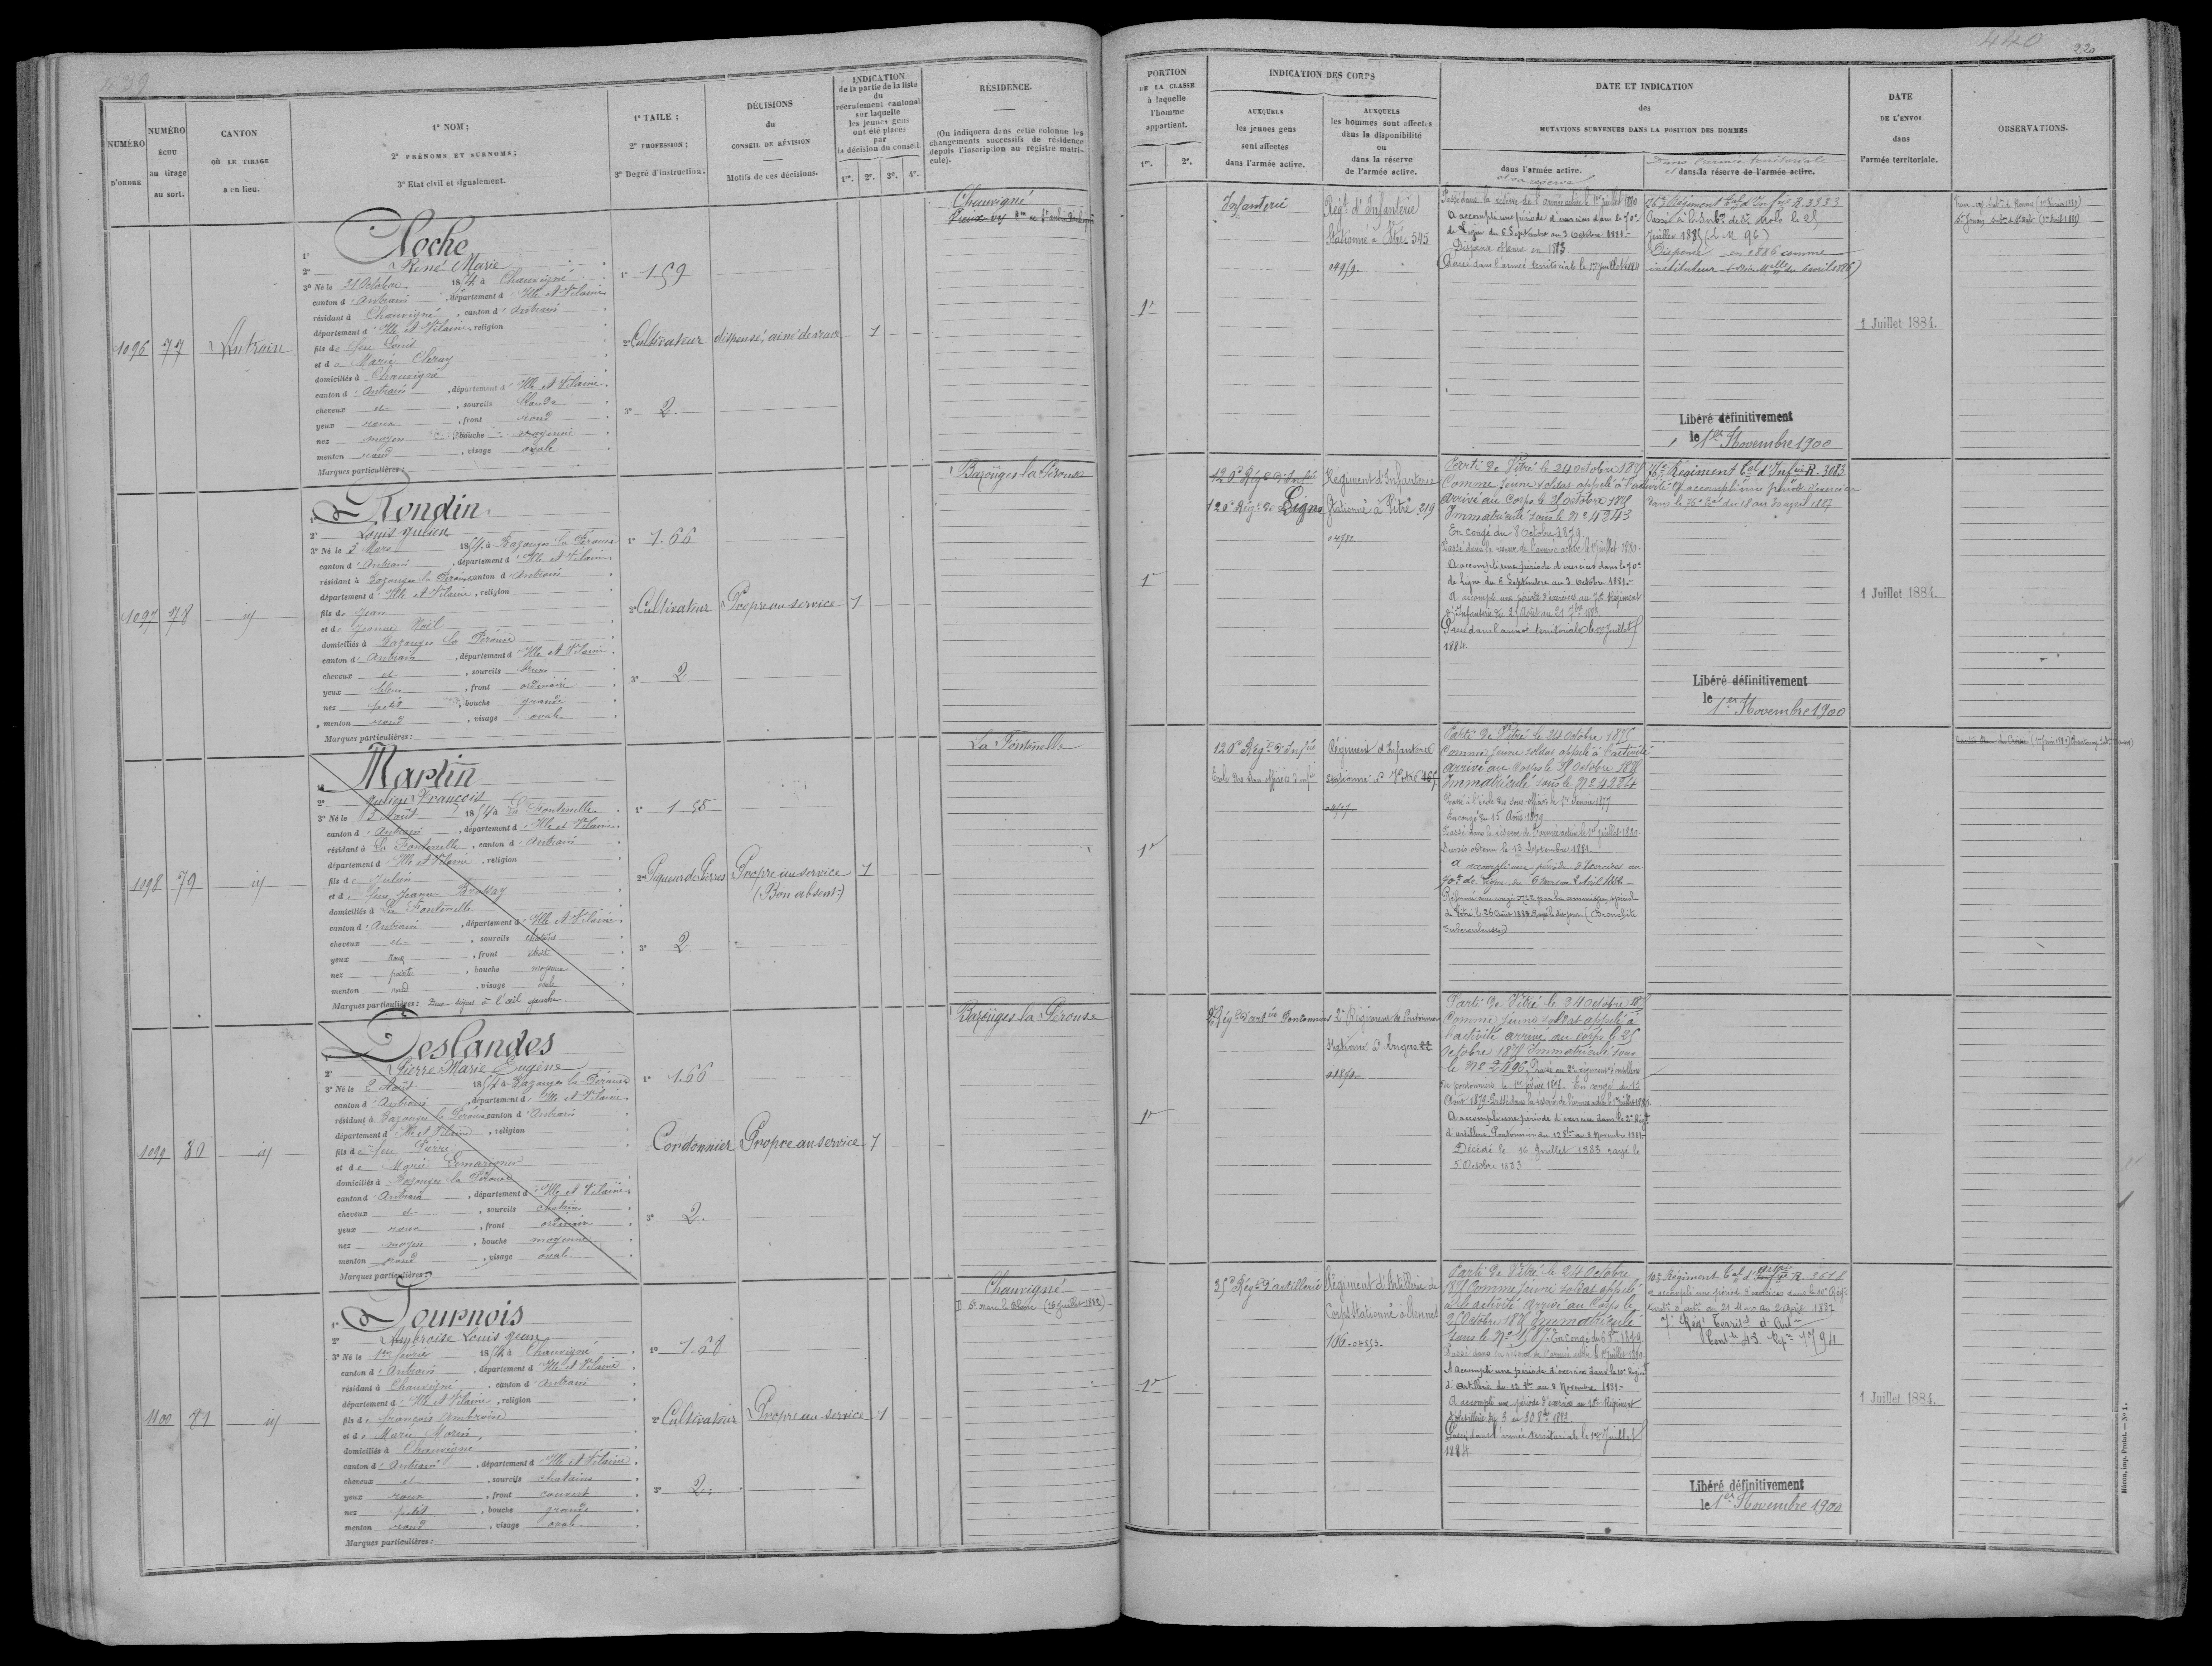 439
NUMÉRO
D'ORDRE
NUMÉRO
ÉCHU
au tirage
au sort.
CANTON
OÙ LE TIRAGE
a eu lieu.
1º NOM;
2º PRÉNOMS ET SURNOMS;
3º Etat civil et signalement.
1º TAILE;
2º PROFESSION;
3º Degré d'instruction.
DÉCISIONS
du
CONSEIL DE RÉVISION
Motifs de ces décisions.
INDICATION
de la partie de la liste
du
recrutement cantonal
sur laquelle
les jeunes gens
ont été placés
par
la décision du conseil.
1re. 2e. 3e. 4e.
RÉSIDENCE.
(On indiquera dans cette colonne les
changements successifs de résidence
depuis l'inscription au registre matri-
cule).
1096 77 Antrain
1º Noche
2º René Marie
3º Né le 21 Octobre 1854 à Chauvigné
canton d'Antrain, département d'Ille et Vilaine
résidant à Chauvigné, canton d'Antrain
département d'Ille et Vilaine, religion
fils de feu Louis
et de Marie
domiciliés à Chauvigné
canton d'Antrain, département d'Ille et Vilaine
cheveux et, sourcils blonds
yeux roux, front rond
nez moyen, bouche moyenne
menton rond, visage ovale
Marques particulières:
1º 1.59
2º Cultivateur
3º 2
dispensé, aîné de veuve
1
Chauvigné
1097 78 id
1º Rondin
2º Louis Julien
3º Né le 3 Mars 1854 à Bazouges la Pérouse
canton d'Antrain, département d'Ille et Vilaine
résidant à Bazouges la Pérouse, canton d'Antrain
département d'Ille et Vilaine, religion
fils de Jean
et de Jeanne Noël
domiciliés à Bazouges la Pérouse
canton d'Antrain, département d'Ille et Vilaine
cheveux et, sourcils bruns
yeux bleus, front ordinaire
nez petit, bouche grande
menton rond, visage ovale
Marques particulières:
1º 1.66
2º Cultivateur
3º 2
Propre au service
1
Bazouges la Pérouse
1098 79 id
1º Martin
2º Julien François
3º Né le 3 Août 1854 à La Fontenelle
canton d'Antrain, département d'Ille et Vilaine
résidant à La Fontenelle, canton d'Antrain
département d'Ille et Vilaine, religion
fils de Julien
et de feue Jeanne
domiciliés à La Fontenelle
canton d'Antrain, département d'Ille et Vilaine
cheveux et, sourcils chatains
yeux roux, front étroit
nez pointu, bouche moyenne
menton rond, visage ovale
Marques particulières: Deux à l'œil gauche.
2º Piqueur de Pierres
3º 2
Propre au service
(Bon absent)
1
La Fontenelle
1099 80 id
1º Deslandes
2º Pierre Marie Eugène
3º Né le 2 Août 1854 à Bazouges la Pérouse
canton d'Antrain, département d'Ille et Vilaine
résidant à Bazouges la Pérouse, canton d'Antrain
département d'Ille et Vilaine, religion
fils de feu Pierre
et de Marie
domiciliés à Bazouges la Pérouse
canton d'Antrain, département d'Ille et Vilaine
cheveux et, sourcils chatains
yeux roux, front ordinaire
nez moyen, bouche moyenne
menton rond, visage ovale
Marques particulières:
1º 1.66
Cordonnier
3º 2
Propre au service
1
Bazouges la Pérouse
1100 81 id
1º Tournois
2º Ambroise Louis Jean
3º Né le 1er février 1854 à Chauvigné
canton d'Antrain, département d'Ille et Vilaine
résidant à Chauvigné, canton d'Antrain
département d'Ille et Vilaine, religion
fils de françois Ambroise
et de Marie Morin
domiciliés à Chauvigné
canton d'Antrain, département d'Ille et Vilaine
cheveux et, sourcils chatains
yeux roux, front couvert
nez petit, bouche grande
menton rond, visage ovale
Marques particulières:
1º 1.68
2º Cultivateur
3º 2
Propre au service
1
Chauvigné
440
220
PORTION
DE LA CLASSE
à laquelle
l'homme
appartient.
1re. 2e.
INDICATION DES CORPS
AUXQUELS
les jeunes gens
sont affectés
dans l'armée active.
AUXQUELS
les hommes sont affectés
dans la disponibilité
ou
dans la réserve
de l'armée active.
DATE ET INDICATION
des
MUTATIONS SURVENUES DANS LA POSITION DES HOMMES
dans l'armée active.
et sa réserve
Dans l'armée territoriale
et dans la réserve de l'armée active.
DATE
DE L'ENVOI
dans
l'armée territoriale.
OBSERVATIONS.
1re
Infanterie
Régt. d'Infanterie
Stationné à Vitré 545
Passé dans la réserve de l'armée active le 1er juillet 1880
A accompli une période d'exercices dans le 70e
de Ligne du 6 Septembre au 3 Octobre 1881.
Dispense obtenue en 1883
Passé dans l'armée territoriale le 1er Juillet 1884
76e Régiment Tal d'Infrie R. 3333
Dispensé en 1886 comme
instituteur
Libéré définitivement
le 1er Novembre 1900
1 Juillet 1884.
1re
120e Régt de Ligne
Régiment d'Infanterie
Stationné à Vitré 219
Parti de Vitré le 24 octobre 1875
Comme jeune soldat appelé à l'activité
arrivé au Corps le octobre 1875
Immatriculé sous le nº 4243
En congé du 8 Octobre 1879
Passé dans la réserve de l'armée active le 1er juillet 1880
A accompli une période d'exercices dans le 70e
de Ligne du 6 Septembre au 3 Octobre 1881.
A accompli une période d'exercices au 70e Régiment
d'Infanterie du 25 Août au 21 7bre 1883
Passé dans l'armée territoriale le 1er Juillet
1884.
76e Régiment Tal d'Infrie R. 3083
A accompli une période d'exercices
dans le 76e Tal du 18 au 30 avril 1887
Libéré définitivement
le 1er Novembre 1900
1 Juillet 1884.
1re
120e Régt d'Infrie
Ecole des Sous officiers d'infie
Régiment d'Infanterie
stationné à Vitré
Parti de Vitré le 24 Octobre 1875
Comme jeune soldat appelé à l'activité
arrivé au Corps le Octobre 1875
Immatriculé sous le nº 4234
Passé à l'école des sous officiers le 1er 1877
En congé du 15 Août 1879
Passé dans la réserve de l'armée active le 1er juillet 1880
Sursis obtenu le 13 Septembre 1881.
A accompli une période d'exercices au
70e de Ligne du 6 Mars au 2 Avril 1882
Réformé par la commission spéciale
de Vitré le 26 Août (Bronchite
tuberculeuse)
1re
2e Régiment de Pontonniers
stationné à Angers
Parti de Vitré le 24 Octobre 1875
Comme jeune soldat appelé à
l'activité arrivé au corps le 25
Octobre 1875 Immatriculé sous
le Nº 2496. Passé au 2e régiment d'artillerie
En congé du 13
Août 1879. Passé dans la réserve de l'armée active le 1er Juillet 1880.
A accompli une période d'exercices dans le 2e Régt
d'artillerie Pontonniers du 12 8bre au 8 Novembre 1881
Décédé le 16 Juillet 1883 rayé le
5 Octobre 1883
1re
35e Régt d'artillerie
Régiment d'Artillerie de
Corps Stationné à Rennes
Parti de Vitré le 24 Octobre
1875 Comme jeune soldat appelé
à l'activité arrivé au Corps le
25 Octobre 1875 Immatriculé
Passé dans la réserve de l'armée active le 1er juillet 1880
A accompli une période d'exercices dans le 10e Régimt
d'Artillerie du 12 8bre au 8 Novembre 1881.
A accompli une période d'exercices au 10e Régiment
d'artillerie du 3 au 30 8bre 1883.
Passé dans l'armée territoriale le 1er Juillet
1884
10e Régiment Tal d'Artrie R. 2618
7e Régt Territal d'Artie
Libéré définitivement
le 1er Novembre 1900
1 Juillet 1884.
Mâcon, imp. Protat. — Nº 1.